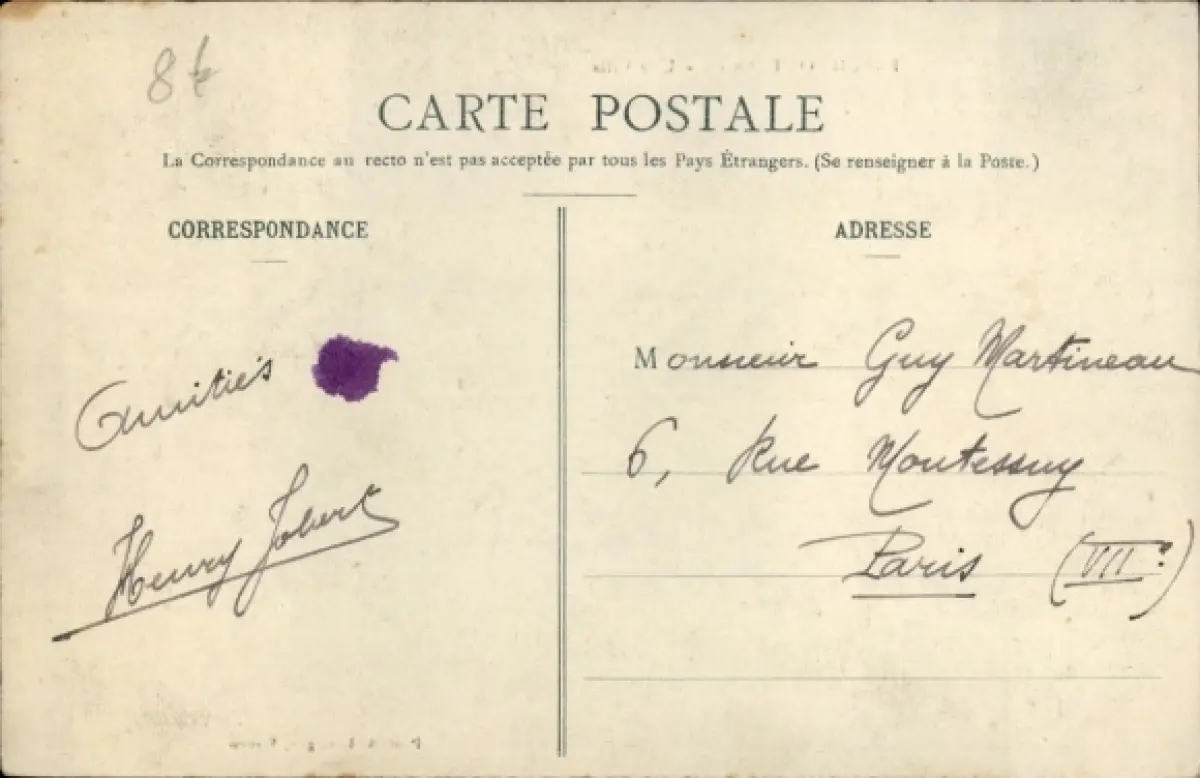 8f
CARTE POSTALE
La Correspondance au recto n'est pas acceptée par tous les Pays Étrangers. (Se renseigner à la Poste.)
CORRESPONDANCE
ADRESSE
Amitiés
Henry Jobert
Monsieur Guy Martineau
6, Rue Montessuy
Paris (VIIe)